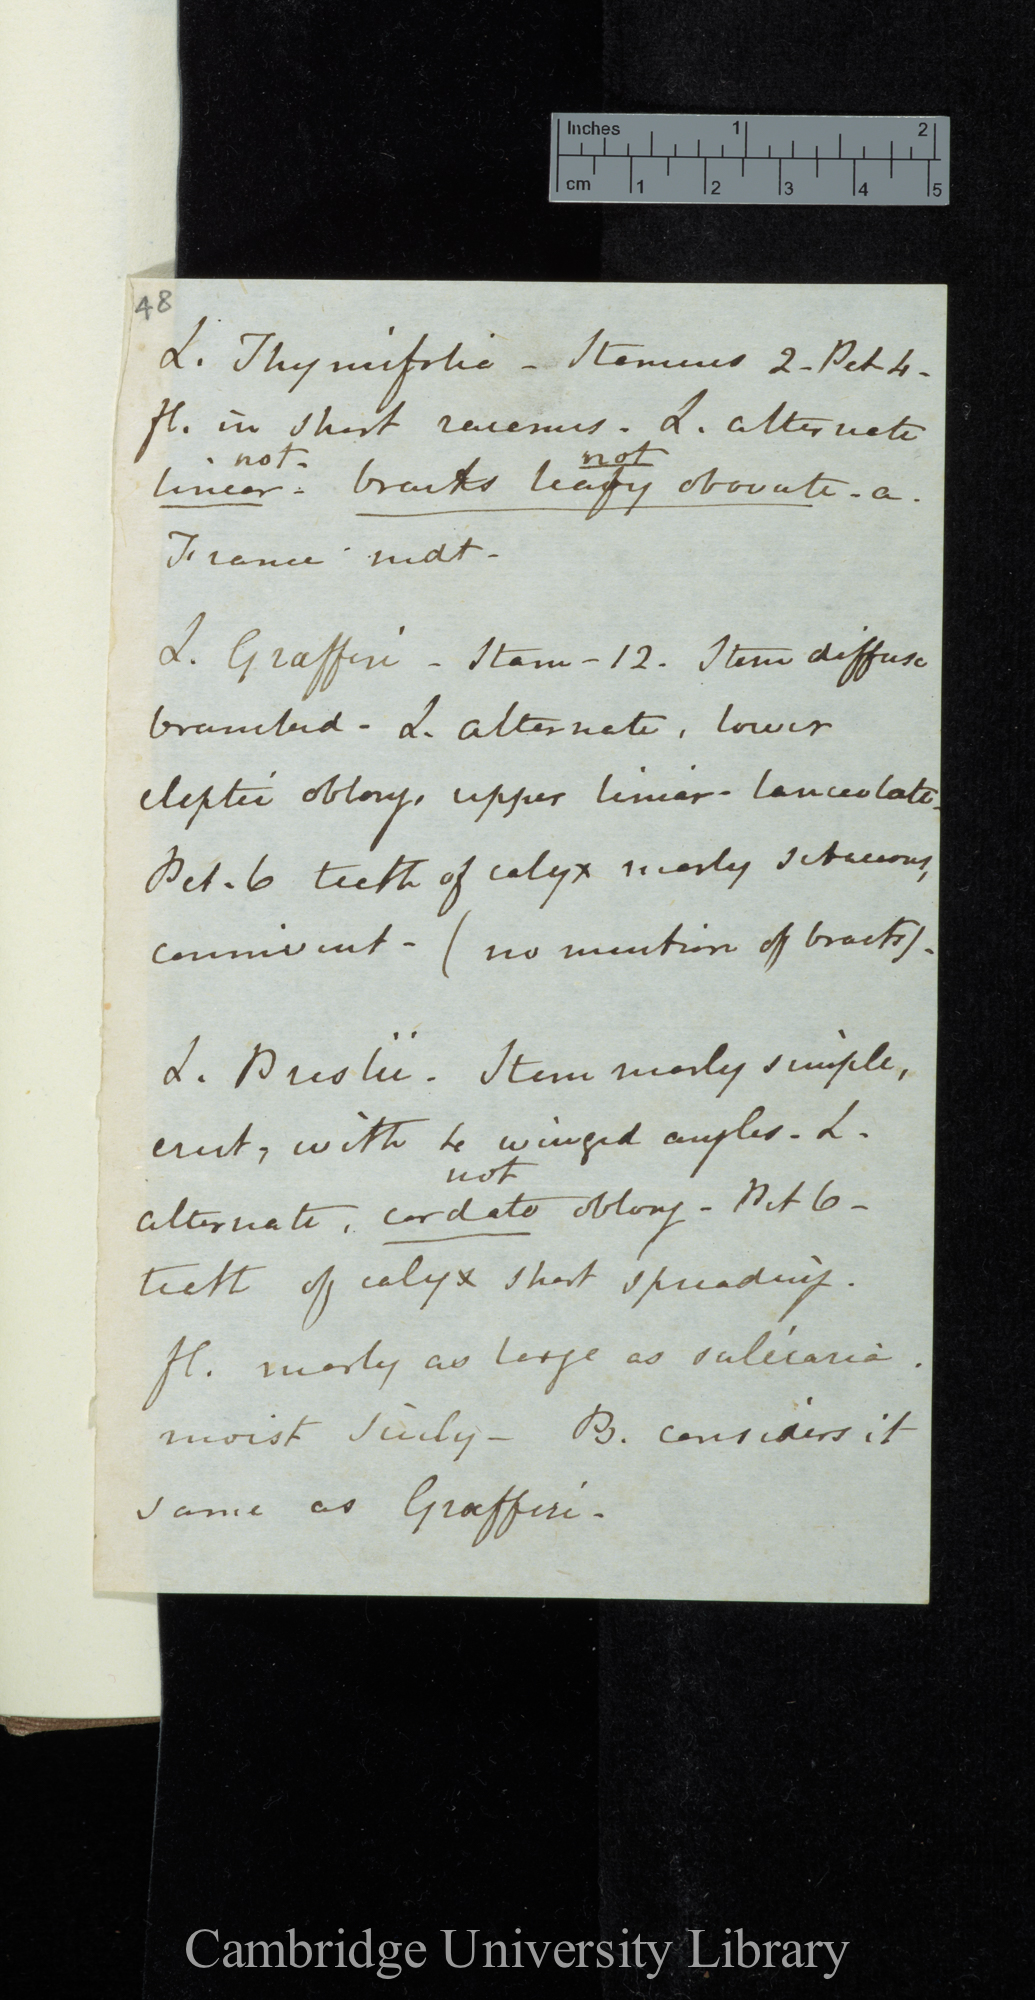 Inches 1 2
cm 1 2 3 4 5
48
L. Thymifolia - Stamens 2 - Pet 4 -
fl. in short racemes - L. alternate
not - not
linear - bracts leafy obovate - a.
France mdt -
L. Græfferi - Stam - 12. Stem diffuse
branched - L. alternate, lower
eleptic oblong, upper linear - lanceolate -
Pet - 6 teeth of calyx nearly setaceous,
connivent - ( no mention of bracts ) -
L. Preslii - Stem nearly simple,
erect, with 4 winged angles - L.
not
alternate, cordate oblong - Pet 6 -
teeth of calyx short spreading.
fl. nearly as large as salicaria.
moist Sicily - B. considers it
same as Græfferi -
Cambridge University Library